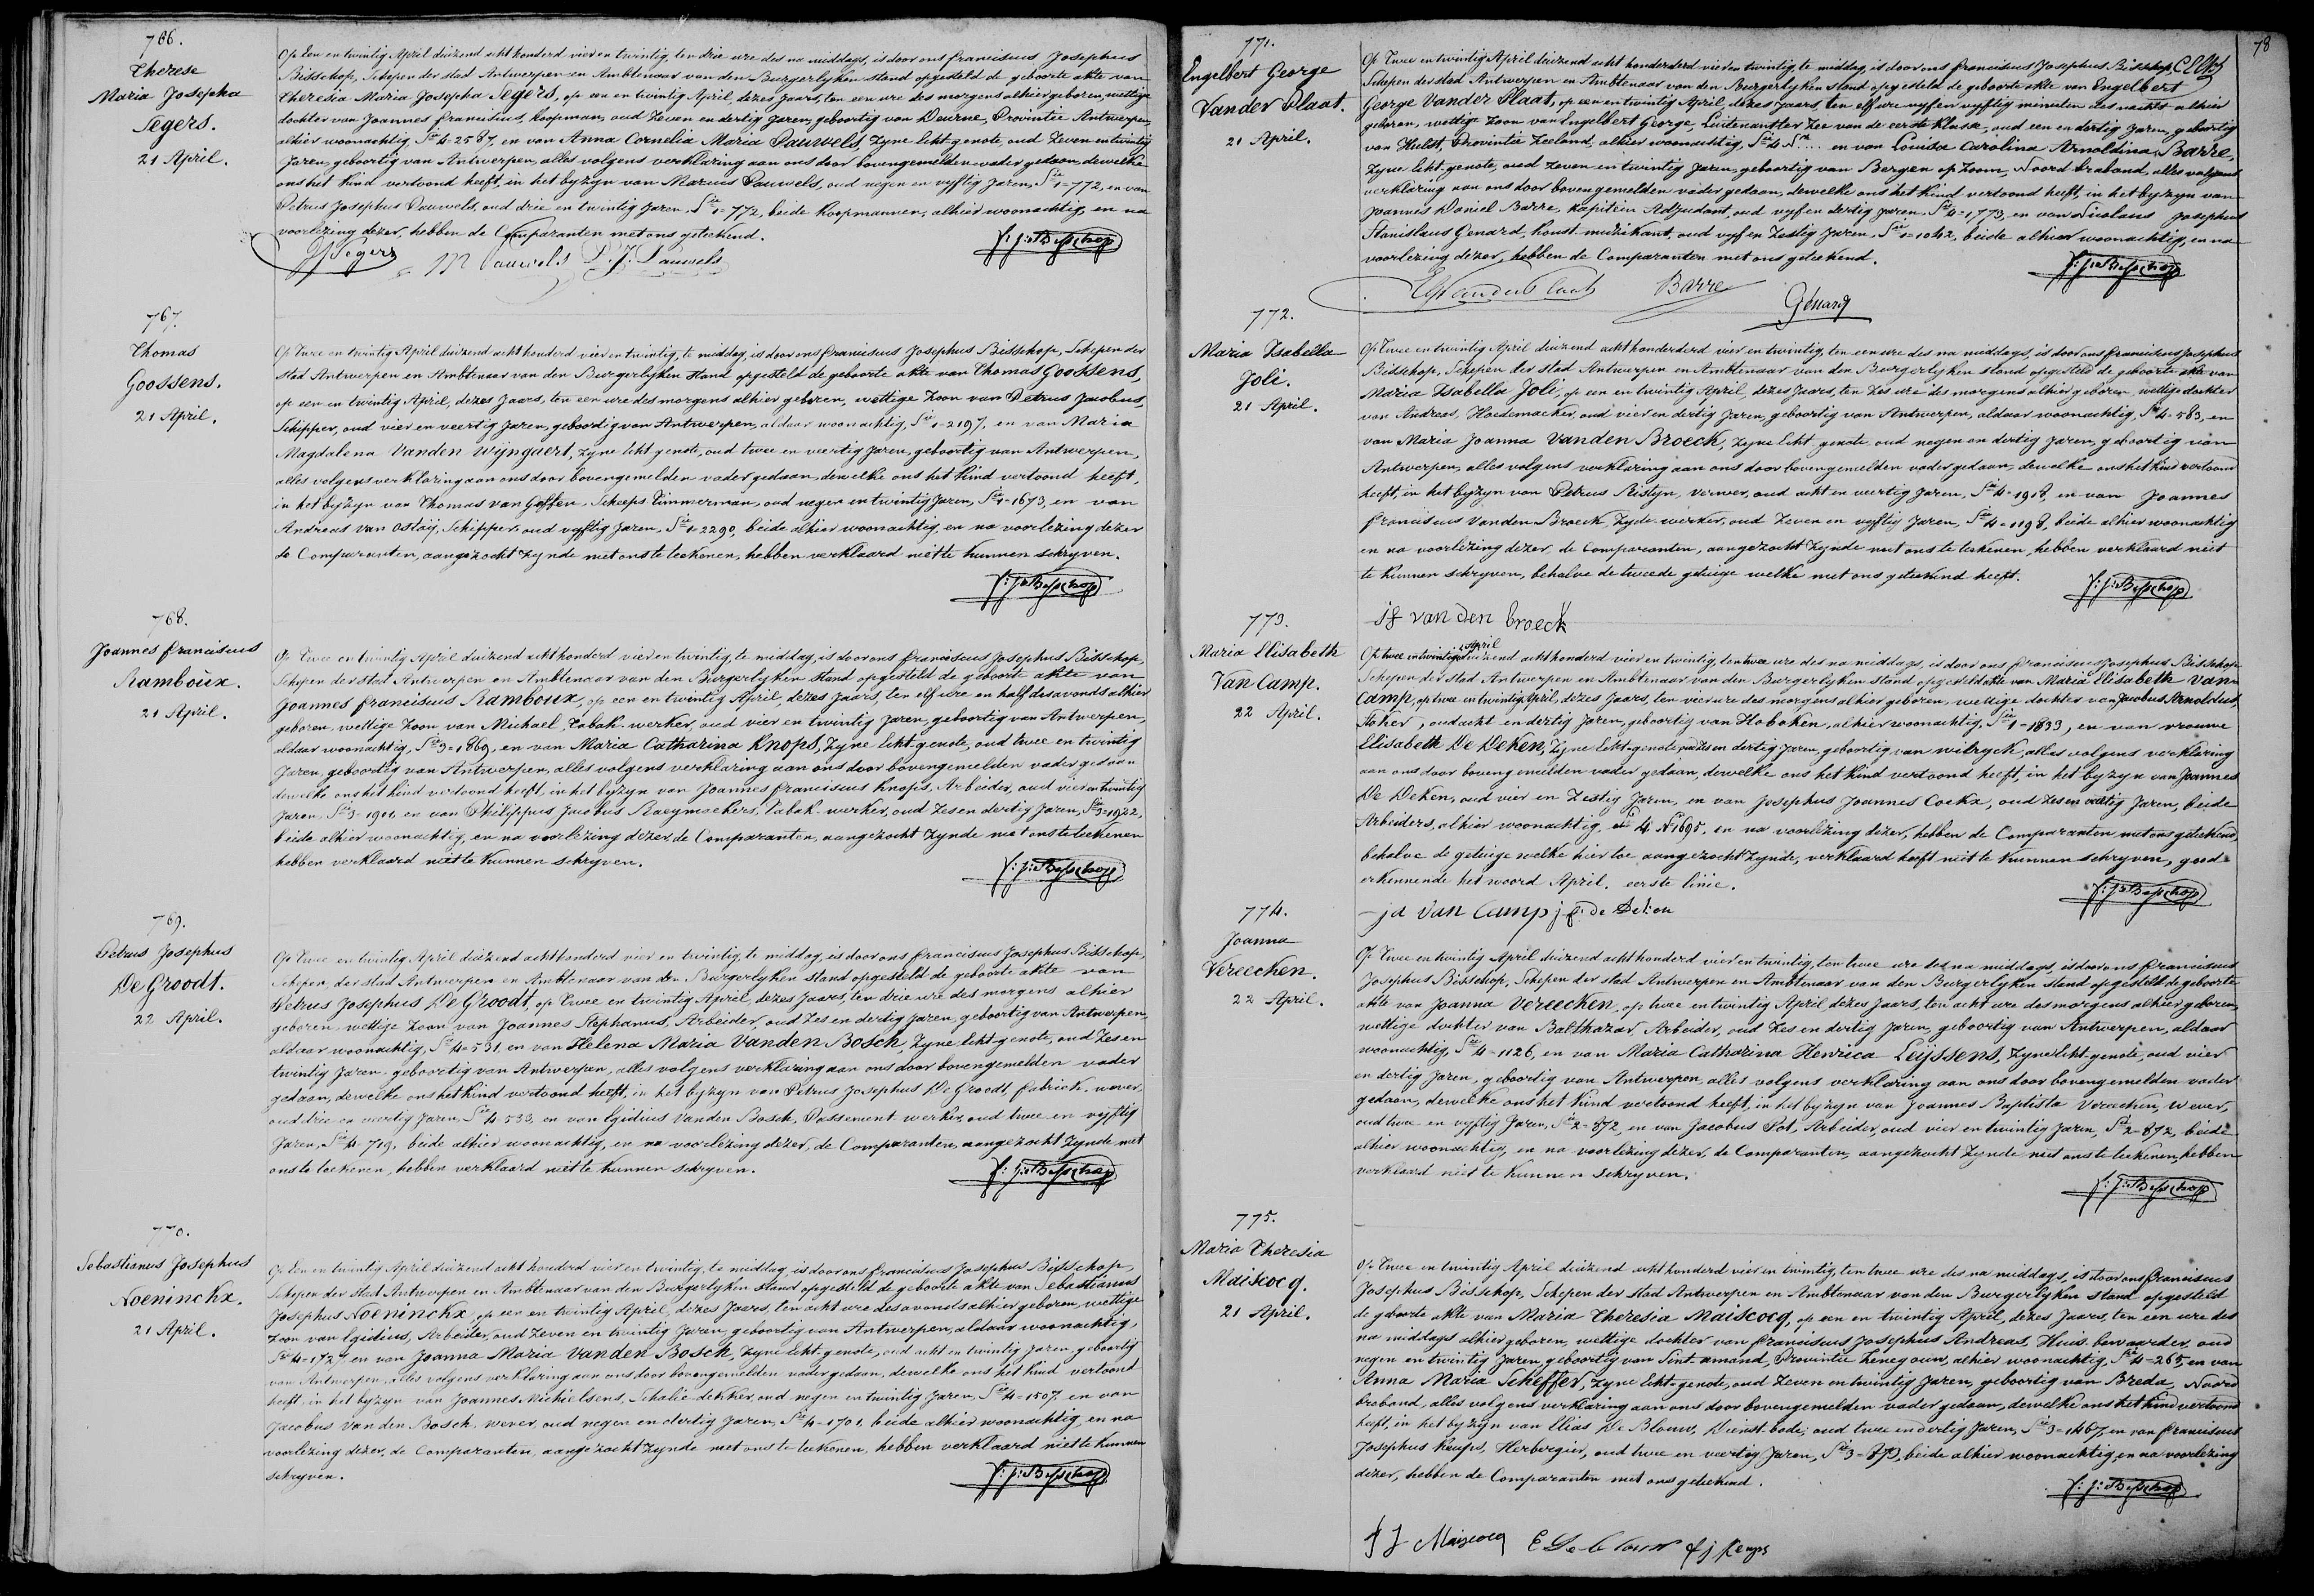 766.
Therese
Maria Josepha
Segers.
21 April.
Op Een en twintig April duizend acht honderd vier en twintig, ten drie ure des na middags, is door ons franciscus Josephus
Bisschop, Schepen der stad Antwerpen en Ambtenaar van den Burgerlyken stand opgesteld de geboorte akte van
Theresia Maria Josepha Segers, op een en twintig April, dezes Jaars, ten een ure des morgens alhier geboren, wettige
dochter van Joannes franciscus, Koopman, oud Zeven en dertig Jaren, geboortig van Deurne, Provintie Antwerpen,
alhier woonachtig, Sie 4 = 2587, en van Anna Cornelia Maria Pauwels, Zyne Echt-genote, oud Zeven en twintig
Jaren, geboortig van Antwerpen, alles volgens verklaring aan ons door bovengemelden vader gedaan, dewelke
ons het Kind vertoond heeft, in het byzyn van Marcus Pauwels, oud negen en vyftig Jaren, Sie 1 = 772, en van
Petrus Josephus Pauwels, oud drie en twintig Jaren, Sie 1 = 772, beide Koopmannen, alhier woonachtig, en na
voorlezing dezer, hebben de Comparanten met ons geteekend.
JF Segers M Pauwels P: J: Pauwels
f: j: Bisschop
767.
Thomas
Goossens.
21 April.
Op Twee en twintig April duizend acht honderd vier en twintig, te middag, is door ons franciscus Josephus Bisschop, Schepen der
stad Antwerpen en Ambtenaar van den Burgerlyken stand opgesteld de geboorte akte van Thomas Goossens,
op een en twintig April, dezes Jaars, ten een ure des morgens alhier geboren, wettige Zoon van Petrus Jacobus,
Schipper, oud vier en veertig Jaren, geboortig van Antwerpen, aldaar woonachtig, Sie 1 = 2197, en van Maria
Magdalena Vanden Wijngaert, Zyne Echt genote, oud twee en veertig Jaren, geboortig van Antwerpen,
alles volgens verklaring aan ons door bovengemelden vader gedaan, dewelke ons het Kind vertoond heeft,
in het byzyn van Thomas van Gossen, Scheeps Timmerman, oud negen en twintig Jaren, Sie 1 = 1673, en van
Andreas van Ostaij, Schipper, oud vyftig Jaren, Sie 1 = 2290, beide alhier woonachtig, en na voorlezing dezer
de Comparanten, aangezocht Zynde met ons te teekenen, hebben verklaard niet te Kunnen schryven.
f: j: Bisschop
768.
Joannes franciscus
Ramboux.
21 April.
Op Twee en twintig April duizend acht honderd vier en twintig, te middag, is door ons franciscus Josephus Bisschop,
Schepen der stad Antwerpen en Ambtenaar van den Burgerlyken stand opgesteld de geboorte akte van
Joannes franciscus Ramboux, op een en twintig April, dezes Jaars, ten elf ure en half des avonds alhier
geboren, wettige Zoon van Michael, Tabak-werker, oud vier en twintig Jaren, geboortig van Antwerpen,
aldaar woonachtig, Sie 3 = 1869, en van Maria Catharina Knops, Zyne Echt-genote, oud twee en twintig
Jaren, geboortig van Antwerpen, alles volgens verklaring aan ons door bovengemelden vader gedaan
dewelke ons het Kind vertoond heeft, in het byzyn van Joannes franciscus Knops, Arbeider, oud vier en twintig
Jaren, Sie 3 = 1901, en van Philippus Jacobus Raeymaekers, Tabak-werker, oud Zes en dertig Jaren, Sie 3 = 1922,
beide alhier woonachtig, en na voorlezing dezer, de Comparanten, aangezocht Zynde met ons te teekenen
hebben verklaard niet te Kunnen schryven.
f: j: Bisschop
769.
Petrus Josephus
De Groodt.
22 April.
Op Twee en twintig April duizend acht honderd vier en twintig, te middag, is door ons franciscus Josephus Bisschop,
Schepen der stad Antwerpen en Ambtenaar van den Burgerlyken stand opgesteld de geboorte akte van
Petrus Josephus De Groodt, op Twee en twintig April, dezes Jaars, ten drie ure des morgens alhier
geboren, wettige Zoon van Joannes Stephanus, Arbeider, oud Zes en dertig Jaren, geboortig van Antwerpen,
aldaar woonachtig, Sie 4 = 531, en van Helena Maria Vanden Bosch, Zyne Echt-genote, oud Zes en
twintig Jaren, geboortig van Antwerpen, alles volgens verklaring aan ons door bovengemelden vader
gedaan, dewelke ons het Kind vertoond heeft, in het byzyn van Petrus Josephus De Groodt, fabriek-wever,
oud drie en veertig Jaren, Sie 4 = 533, en van Egidius Vanden Bosch, Passement-werker, oud twee en vyftig
Jaren, Sie 4 = 719, beide alhier woonachtig, en na voorlezing dezer, de Comparanten, aangezocht Zynde met
ons te teekenen, hebben verklaard niet te Kunnen schryven.
f: j: Bisschop
770.
Sebastianus Josephus
Noeninckx.
21 April.
Op Een en twintig April duizend acht honderd vier en twintig, te middag, is door ons franciscus Josephus Bisschop,
Schepen der stad Antwerpen en Ambtenaar van den Burgerlyken stand opgesteld de geboorte akte van Sebastianus
Josephus Noeninckx, op een en twintig April, dezes Jaars, ten acht ure des avonds alhier geboren, wettige
Zoon van Egidius, Arbeider, oud Zeven en twintig Jaren, geboortig van Antwerpen, aldaar woonachtig,
Sie 4 = 1727, en van Joanna Maria Vanden Bosch, Zyne Echt-genote, oud acht en twintig Jaren, geboortig
van Antwerpen, alles volgens verklaring aan ons door bovengemelden vader gedaan, dewelke ons het Kind vertoond
heeft, in het byzyn van Joannes Michielsens, Schalie-dekker, oud negen en twintig Jaren, Sie 4 = 1507, en van
Jacobus Vanden Bosch, wever, oud negen en dertig Jaren, Sie 4 = 1701, beide alhier woonachtig, en na
voorlezing dezer, de Comparanten, aangezocht Zynde met ons te teekenen, hebben verklaard niet te Kunnen
schryven.
f: j: Bisschop
78
771.
Engelbert George
Vander Plaat.
21 April.
Op Twee en twintig April duizend acht honderderd vier en twintig, te middag, is door ons franciscus Josephus Bisschop,
Schepen der stad Antwerpen en Ambtenaar van den Burgerlyken stand opgesteld de geboorte akte van Engelbert
George Vander Plaat, op een en twintig April, dezes Jaars, ten elf ure vyf en vyftig minuten des nachts alhier
geboren, wettige Zoon van Engelbert George, Luitenant ter Zee van de eerste Klasse, oud een en dertig Jaren, geboortig
van Hulst, Provintie Zeeland, alhier woonachtig, Sie 4 No .... en van Louisa Carolina Arnoldina Barre,
Zyne Echt-genote, oud Zeven en twintig Jaren, geboortig van Bergen op Zoom, Noord-braband, alles volgens
verklaring aan ons door bovengemelden vader gedaan, dewelke ons het Kind vertoond heeft, in het byzyn van
Joannes Daniel Barre, Kapitein Adjudant, oud vyf en dertig Jaren, Sie 4 = 1773, en van Nicolaus Josephus
Stanislaus Genard, Konst-muzikant, oud vyf en Zestig Jaren, Sie 1 = 1042, beide alhier woonachtig, en na
voorlezing dezer, hebben de Comparanten met ons geteekend.
f: j: Bisschop
EG vander Plaat Barre Génard
772.
Maria Isabella
Joli.
21 April.
Op Twee en twintig April duizend acht honderderd vier en twintig, ten een ure des na middags, is door ons franciscus Josephus
Bisschop, Schepen der stad Antwerpen en Ambtenaar van den Burgerlyken stand opgesteld de geboorte akte van
Maria Isabella Joli, op een en twintig April, dezes Jaars, ten Zes ure des morgens alhier geboren, wettige dochter
van Andreas, Hoedemacker, oud vier en dertig Jaren, geboortig van Antwerpen, aldaar woonachtig, Sie 4 = 583, en
van Maria Joanna Vanden Broeck, Zyne Echt-genote, oud negen en dertig Jaren, geboortig van
Antwerpen, alles volgens verklaring aan ons door bovengemelden vader gedaan, dewelke ons het Kind vertoond
heeft, in het byzyn van Petrus Ristyn, verwer, oud acht en veertig Jaren, Sie 4 = 1918, en van Joannes
franciscus Vanden Broeck, Zyde-werker, oud Zeven en vyftig Jaren, Sie 4 = 1198, beide alhier woonachtig
en na voorlezing dezer, de Comparanten, aangezocht Zynde met ons te teekenen, hebben verklaard niet
te Kunnen schryven, behalve de tweede getuige welke met ons geteekend heeft.
f: j: Bisschop
jf van den broeck
773.
Maria Elisabeth
Van Camp.
22 April.
April
Op twee en twintig duizend acht honderd vier en twintig, ten twee ure des na middags, is door ons franciscus Josephus Bisschop
Schepen der stad Antwerpen en Ambtenaar van den Burgerlyken stand opgesteld akte van Maria Elisabeth Van
Camp, op twee en twintig April, dezes Jaars, ten vier ure des morgens alhier geboren, wettige dochter van Jacobus Arnoldus,
Staker, oud acht en dertig Jaren, geboortig van Hoboken, alhier woonachtig, Sie 1 = 1833, en van vrouwe
Elisabeth De Deken, Zyne Echt-genote, oud Zes en dertig Jaren, geboortig van Wilryck, alles volgens verklaring
aan ons door bovengemelden vader gedaan, dewelke ons het Kind vertoond heeft, in het byzyn van Joannes
De Deken, oud vier en Zestig Jaren, en van Josephus Joannes Cockx, oud Zes en veertig Jaren, beide
Arbeiders, alhier woonachtig, Sie 4 No 1695, en na voorlezing dezer, hebben de Comparanten met ons geteekend,
behalve de getuige welke hier toe aangezocht Zynde, verklaard heeft niet te Kunnen schryven, goed
erkennende het woord April, eerste linie.
f: j: Bisschop
ja Van Camp de Deken
774.
Joanna
Vereecken.
22 April.
Op Twee en twintig April duizend acht honderd vier en twintig, ten twee ure des na middags, is door ons franciscus
Josephus Bisschop, Schepen der stad Antwerpen en Ambtenaar van den Burgerlyken stand opgesteld de geboorte
akte van Joanna Vereecken, op twee en twintig April dezes Jaars, ten acht ure des morgens alhier geboren,
wettige dochter van Balthazar, Arbeider, oud Zes en dertig Jaren, geboortig van Antwerpen, aldaar
woonachtig, Sie 4 = 1126, en van Maria Catharina Henrica Leijssens, Zyne Echt-genote, oud vier
en dertig Jaren, geboortig van Antwerpen, alles volgens verklaring aan ons door bovengemelden vader
gedaan, dewelke ons het Kind vertoond heeft, in het byzyn van Joannes Baptista Vereecken, Wever,
oud twee en vyftig Jaren, Sie 2 = 872, en van Jacobus Pot, Arbeider, oud vier en twintig Jaren, Sie 2 = 872, beide
alhier woonachtig, en na voorlezing dezer, de Comparanten, aangezocht Zynde met ons te teekenen, hebben
verklaard niet te Kunnen schryven.
f: j: Bisschop
775.
Maria Theresia
Maiscocq.
21 April.
Op Twee en twintig April duizend acht honderd vier en twintig, ten twee ure des na middags, is door ons franciscus
Josephus Bisschop, Schepen der stad Antwerpen en Ambtenaar van den Burgerlyken stand opgesteld
de geboorte akte van Maria Theresia Maiscocq, op een en twintig April, dezes Jaars, ten een ure des
na middags alhier geboren, wettige dochter van franciscus Josephus Andreas, Huis-bewaerder, oud
negen en twintig Jaren, geboortig van Sint amand, Provintie Henegouw, alhier woonachtig, Sie 4 = 265, en van
Anna Maria Scheffer, Zyne Echt-genote, oud Zeven en twintig Jaren, geboortig van Breda, Noord
braband, alles volgens verklaring aan ons door bovengemelden vader gedaan, dewelke ons het Kind vertoond
heeft, in het byzyn van Elias De Blouw, Dienst-bode, oud twee en dertig Jaren, Sie 3 = 1467, en van franciscus
Josephus Keups, Herbergier, oud twee en veertig Jaren, Sie 3 = 873, beide alhier woonachtig, en na voorlezing
dezer, hebben de Comparanten met ons geteekend.
f: j: Bisschop
f J Maiscocq E De blouw f j Keups